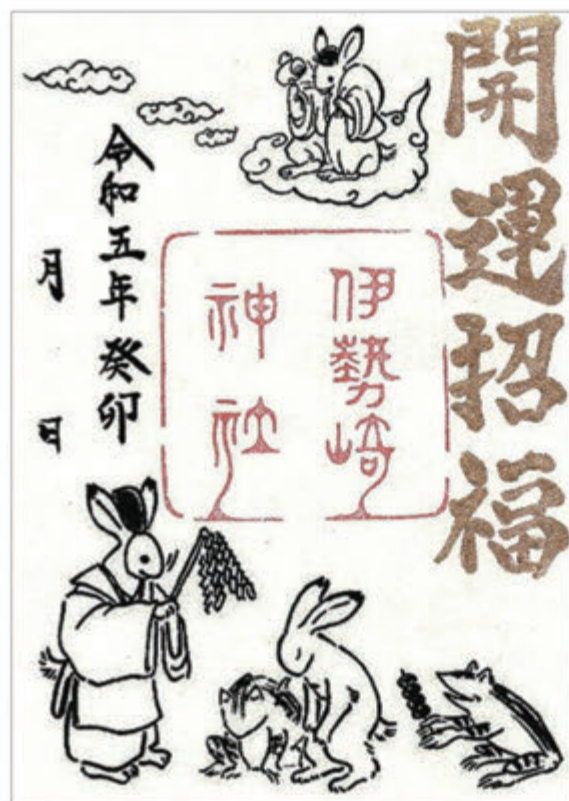 開運招福
伊勢﨑
神社
令和五年癸卯
月 日